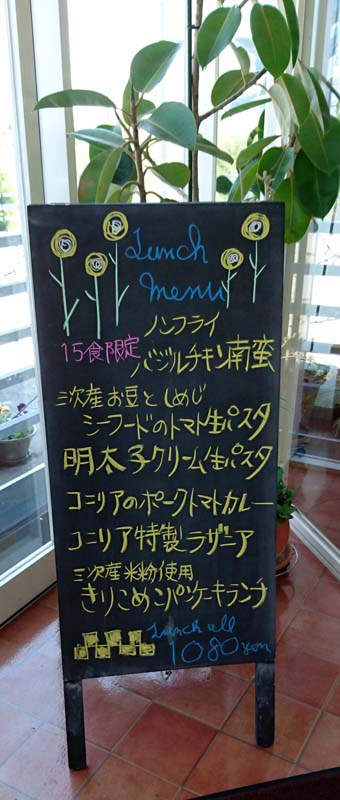 Lunch
menu
ノンフライ
15食限定
バジルチキン南蛮
三次産お豆としめじ
シーフードのトマト生パスタ
明太子クリーム生パスタ
コニリアのポークトマトカレー
コニリア特製ラザニア
三次産米粉使用
きりこめこパンケーキランチ
Lunch all
1080yen